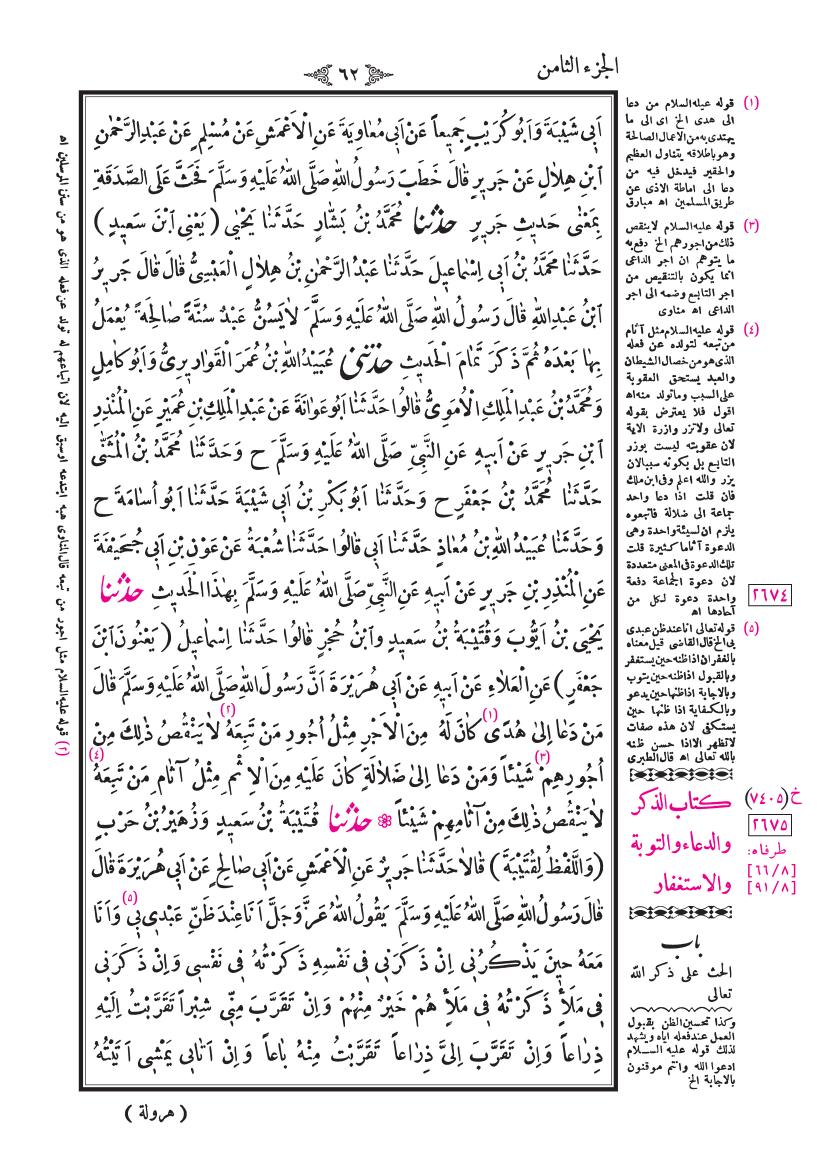 الجزء الثامن
﴿ ٦٢ ﴾
اَبِي شَيْبَةَ وَاَبُو كُرَيْبٍ جَمِيعاً عَنْ اَبِي مُعَاوِيَةَ عَنِ الْاَعْمَشِ عَنْ مُسْلِمٍ عَنْ عَبْدِ الرَّحْمٰنِ
ابْنِ هِلَالٍ عَنْ جَرِيرٍ قَالَ خَطَبَ رَسُولُ اللّٰهِ صَلَّى اللّٰهُ عَلَيْهِ وَسَلَّمَ فَحَثَّ عَلَى الصَّدَقَةِ
بِمَعْنٰى حَدِيثِ جَرِيرٍ حدثنا مُحَمَّدُ بْنُ بَشَّارٍ حَدَّثَنَا يَحْيٰى ( يَعْنِي ابْنَ سَعِيدٍ )
حَدَّثَنَا مُحَمَّدُ بْنُ اَبِي اِسْمَاعِيلَ حَدَّثَنَا عَبْدُ الرَّحْمٰنِ بْنُ هِلَالٍ الْعَبْسِيُّ قَالَ قَالَ جَرِيرُ
ابْنُ عَبْدِ اللّٰهِ قَالَ رَسُولُ اللّٰهِ صَلَّى اللّٰهُ عَلَيْهِ وَسَلَّمَ لَا يَسُنُّ عَبْدٌ سُنَّةً صَالِحَةً يُعْمَلُ
بِهَا بَعْدَهُ ثُمَّ ذَكَرَ تَمَامَ الْحَدِيثِ حدثني عُبَيْدُ اللّٰهِ بْنُ عُمَرَ الْقَوَارِيرِيُّ وَاَبُو كَامِلٍ
وَمُحَمَّدُ بْنُ عَبْدِ الْمَلِكِ الْاُمَوِيُّ قَالُوا حَدَّثَنَا اَبُو عَوَانَةَ عَنْ عَبْدِ الْمَلِكِ بْنِ عُمَيْرٍ عَنِ الْمُنْذِرِ
ابْنِ جَرِيرٍ عَنْ اَبِيهِ عَنِ النَّبِيِّ صَلَّى اللّٰهُ عَلَيْهِ وَسَلَّمَ ح وَحَدَّثَنَا مُحَمَّدُ بْنُ الْمُثَنَّى
حَدَّثَنَا مُحَمَّدُ بْنُ جَعْفَرٍ ح وَحَدَّثَنَا اَبُو بَكْرِ بْنُ اَبِي شَيْبَةَ حَدَّثَنَا اَبُو اُسَامَةَ ح
وَحَدَّثَنَا عُبَيْدُ اللّٰهِ بْنُ مُعَاذٍ حَدَّثَنَا اَبِي قَالُوا حَدَّثَنَا شُعْبَةُ عَنْ عَوْنِ بْنِ اَبِي جُحَيْفَةَ
عَنِ الْمُنْذِرِ بْنِ جَرِيرٍ عَنْ اَبِيهِ عَنِ النَّبِيِّ صَلَّى اللّٰهُ عَلَيْهِ وَسَلَّمَ بِهٰذَا الْحَدِيثِ حدثنا
يَحْيَى بْنُ اَيُّوبَ وَقُتَيْبَةُ بْنُ سَعِيدٍ وَابْنُ حُجْرٍ قَالُوا حَدَّثَنَا اِسْمَاعِيلُ ( يَعْنُونَ ابْنَ
جَعْفَرٍ ) عَنِ الْعَلَاءِ عَنْ اَبِيهِ عَنْ اَبِي هُرَيْرَةَ اَنَّ رَسُولَ اللّٰهِ صَلَّى اللّٰهُ عَلَيْهِ وَسَلَّمَ قَالَ
مَنْ دَعَا اِلٰى هُدًى (١) كَانَ لَهُ مِنَ الْاَجْرِ مِثْلُ اُجُورِ مَنْ تَبِعَهُ (٢) لَا يَنْقُصُ ذٰلِكَ مِنْ
اُجُورِهِمْ (٣) شَيْئاً وَمَنْ دَعَا اِلٰى ضَلَالَةٍ كَانَ عَلَيْهِ مِنَ الْاِثْمِ مِثْلُ آثَامِ مَنْ تَبِعَهُ (٤)
لَا يَنْقُصُ ذٰلِكَ مِنْ آثَامِهِمْ شَيْئاً ❀ حدثنا قُتَيْبَةُ بْنُ سَعِيدٍ وَزُهَيْرُ بْنُ حَرْبٍ
(وَاللَّفْظُ لِقُتَيْبَةَ) قَالَا حَدَّثَنَا جَرِيرٌ عَنِ الْاَعْمَشِ عَنْ اَبِي صَالِحٍ عَنْ اَبِي هُرَيْرَةَ قَالَ
قَالَ رَسُولُ اللّٰهِ صَلَّى اللّٰهُ عَلَيْهِ وَسَلَّمَ يَقُولُ اللّٰهُ عَزَّ وَجَلَّ اَنَا عِنْدَ ظَنِّ عَبْدِي بِي (٥) وَاَنَا
مَعَهُ حِينَ يَذْكُرُنِي اِنْ ذَكَرَنِي فِي نَفْسِهِ ذَكَرْتُهُ فِي نَفْسِي وَاِنْ ذَكَرَنِي
فِي مَلَأٍ ذَكَرْتُهُ فِي مَلَأٍ هُمْ خَيْرٌ مِنْهُمْ وَاِنْ تَقَرَّبَ مِنِّي شِبْراً تَقَرَّبْتُ اِلَيْهِ
ذِرَاعاً وَاِنْ تَقَرَّبَ اِلَيَّ ذِرَاعاً تَقَرَّبْتُ مِنْهُ بَاعاً وَاِنْ اَتَانِي يَمْشِي اَتَيْتُهُ
( هرولة )
(١) قوله عليه السلام من دعا
الى هدى الخ اى الى ما
يهتدى به من الاعمال الصالحة
وهو باطلاقه يتناول العظيم
والحقير فيدخل فيه من
دعا الى اماطة الاذى عن
طريق المسلمين اه مبارق
(٣) قوله عليه السلام لاينقص
ذلك من اجورهم الخ دفع به
ما يتوهم ان اجر الداعى
انما يكون بالتنقيص من
اجر التابع وضمه الى اجر
الداعى اه مناوى
(٤) قوله عليه السلام مثل آثام
من تبعه لتولده عن فعله
الذى هو من خصال الشيطان
والعبد يستحق العقوبة
على السبب وماتولد منه اه
اقول فلا يعترض بقوله
تعالى ولاتزر وازرة الاية
لان عقوبته ليست بوزر
التابع بل بكونه سببا لان
يزر والله اعلم وفى ابن ملك
فان قلت اذا دعا واحد
جماعة الى ضلالة فاتبعوه
يلزم ان لسيئة واحدة وهى
الدعوة آثاما كثيرة قلت
تلك الدعوة فى المعنى متعددة
لان دعوة الجماعة دفعة
واحدة دعوة لكل من
آحادها اه
٢٦٧٤
(٥) قوله تعالى انا عند ظن عبدى
بى الخ قال القاضى قيل معناه
بالغفران اذا ظنه حين يستغفر
وبالقبول اذا ظنه حين يتوب
وبالاجابة اذا ظنها حين يدعو
وبالكفاية اذا ظنها حين
يستكفى لان هذه صفات
لاتظهر الا اذا حسن ظنه
بالله تعالى اه قال الطبرى
كتاب الذكر
والدعاء والتوبة
والاستغفار
خ (٧٤٠٥)
٢٦٧٥
طرفاه:
[٦٦/٨]
[٩١/٨]
باب
الحث على ذكر الله
تعالى
وكذا تحسين الظن بقبول
العمل عند فعله اياه ويشهد
لذلك قوله عليه السلام
ادعوا الله وانتم موقنون
بالاجابة الخ
(٢) قوله عليه السلام مثل اجور من تبعه قال المناوى هبه ابتدعه اوسبق اليه لان اتباعهم له تولد عن فعله الذى هو من سنن المرسلين اه